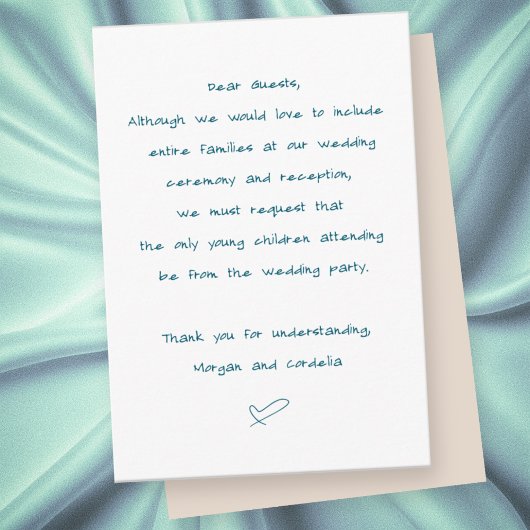 Dear Guests,
Although we would love to include
entire families at our wedding
ceremony and reception,
we must request that
the only young children attending
be from the wedding party.
Thank you for understanding,
Morgan and Cordelia